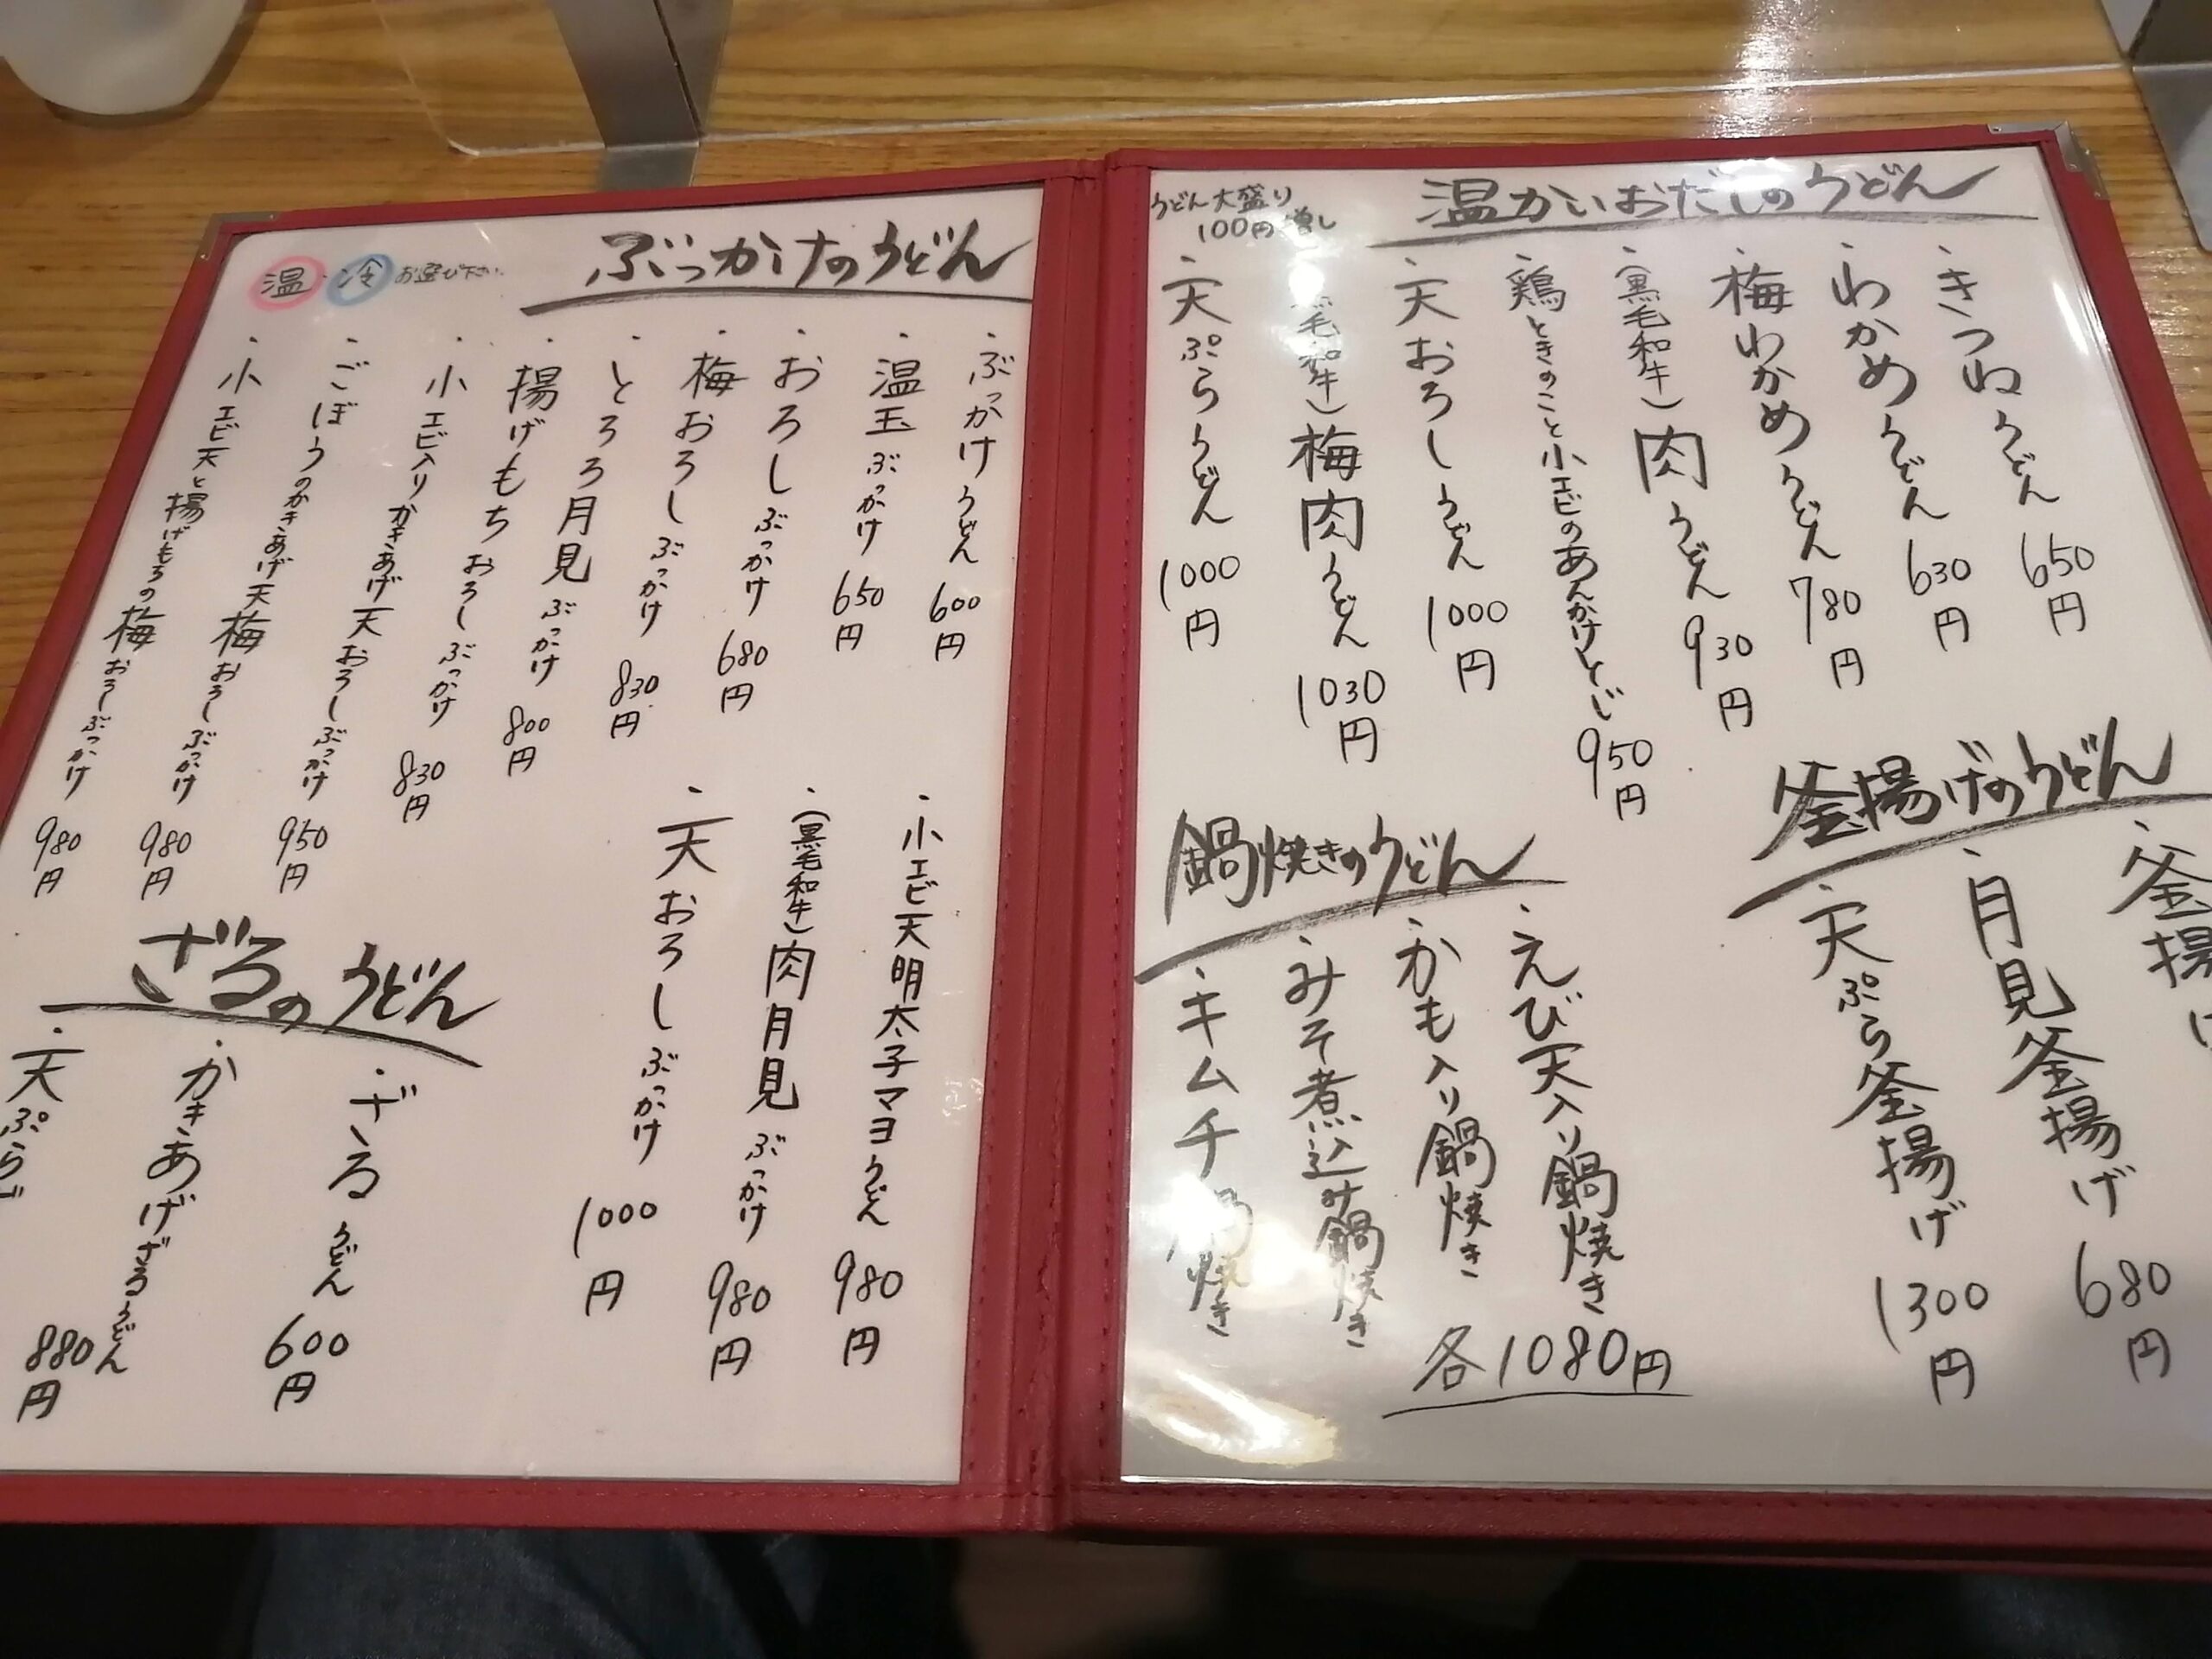 温かいおだしのうどん
うどん大盛り
100円増し
・きつねうどん 650円
・わかめうどん 630円
・梅わかめうどん 780円
・(黒毛和牛)肉うどん 930円
・鶏ときのこと小エビのあんかけとじ 950円
・天おろしうどん 1000円
毛和牛)梅肉うどん 1030円
・天ぷらうどん 1000円
釜揚げのうどん
・釜揚げ
・月見釜揚げ 680円
・天ぷら釜揚げ 1300円
鍋焼きのうどん
・えび天入り鍋焼き
・かも入り鍋焼き
・みそ煮込み鍋焼き
・キムチ鍋焼き
各1080円
ぶっかけのうどん
温・冷お選び下さい
・ぶっかけうどん 600円
・温玉ぶっかけ 650円
・おろしぶっかけ 680円
・梅おろしぶっかけ 830円
・とろろ月見ぶっかけ 800円
・揚げもちおろしぶっかけ 830円
・小エビ入りかきあげ天おろしぶっかけ 950円
・ごぼうのかきあげ天梅おろしぶっかけ 980円
・小エビ天と揚げもちの梅おろしぶっかけ 980円
・小エビ天明太子マヨうどん 980円
・(黒毛和牛)肉月見ぶっかけ 980円
・天おろしぶっかけ 1000円
ざるのうどん
・ざるうどん 600円
・かきあげざるうどん 880円
・天ぷらざ